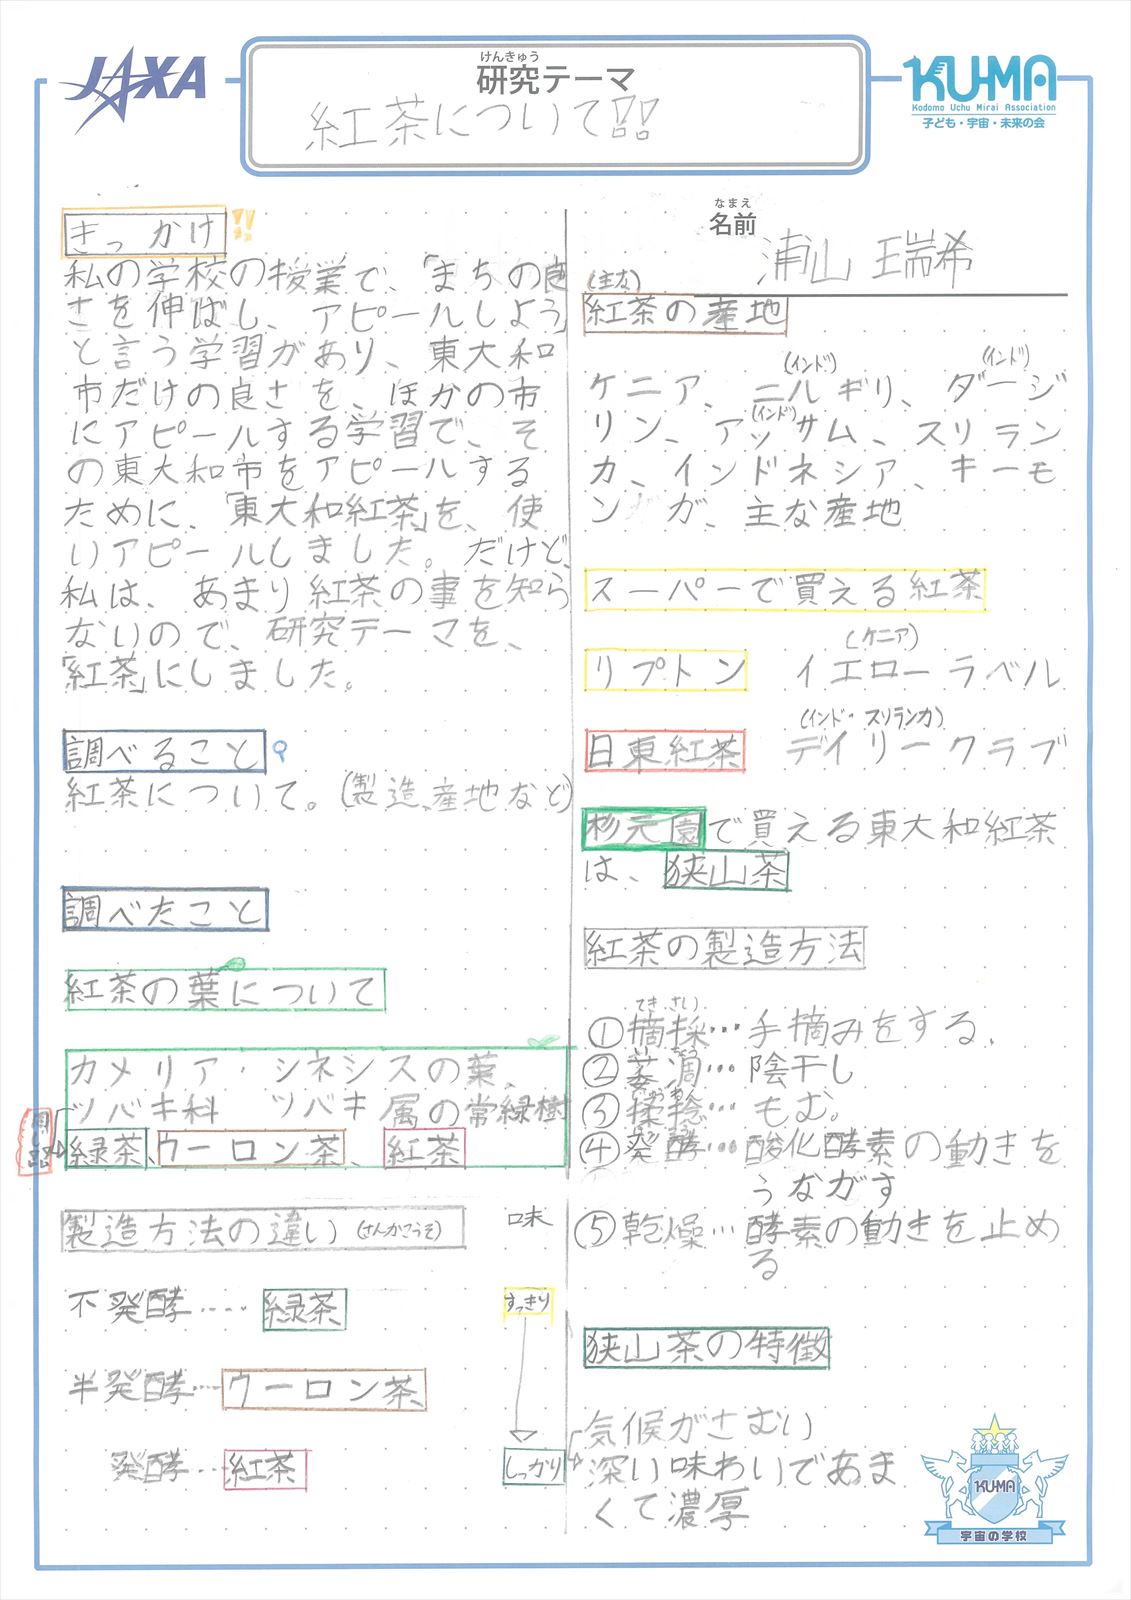 JAXA
けんきゅう
研究テーマ
紅茶について!!
KU-MA
Kodomo Uchu Mirai Association
子ども・宇宙・未来の会
なまえ
名前
浦山 瑞希
きっかけ!!
私の学校の授業で、「まちの良
さを伸ばし、アピールしよう」
と言う学習があり、東大和
市だけの良さを、ほかの市
にアピールする学習で、そ
の東大和市をアピールする
ために、「東大和紅茶」を、使
いアピールしました。だけど、
私は、あまり紅茶の事を知ら
ないので、研究テーマを、
「紅茶」にしました。
調べること
紅茶について。(製造、産地など)
調べたこと
紅茶の葉について
カメリア・シネシスの葉、
ツバキ科 ツバキ属の常緑樹
緑茶、ウーロン茶、紅茶
製造方法の違い(さんかこうそ)
味
不発酵‥‥緑茶
すっきり
半発酵‥‥ウーロン茶
発酵‥‥紅茶
しっかり
(主な)
紅茶の産地
(インド) (インド)
ケニア、ニルギリ、ダージ
(インド)
リン、アッサム、スリラン
カ、インドネシア、キーモ
ン が、主な産地
スーパーで買える紅茶
(ケニア)
リプトン イエローラベル
(インド・スリランカ)
日東紅茶 デイリークラブ
杉元園で買える東大和紅茶
は、狭山茶
紅茶の製造方法
てきさい
①摘採…手摘みをする.
②萎凋…陰干し
じゅうねん
③揉捻…もむ。
④発酵…酸化酵素の動きを
うながす
⑤乾燥…酵素の動きを止め
る
狭山茶の特徴
気候がさむい
深い味わいであま
くて濃厚
KU-MA
宇宙の学校